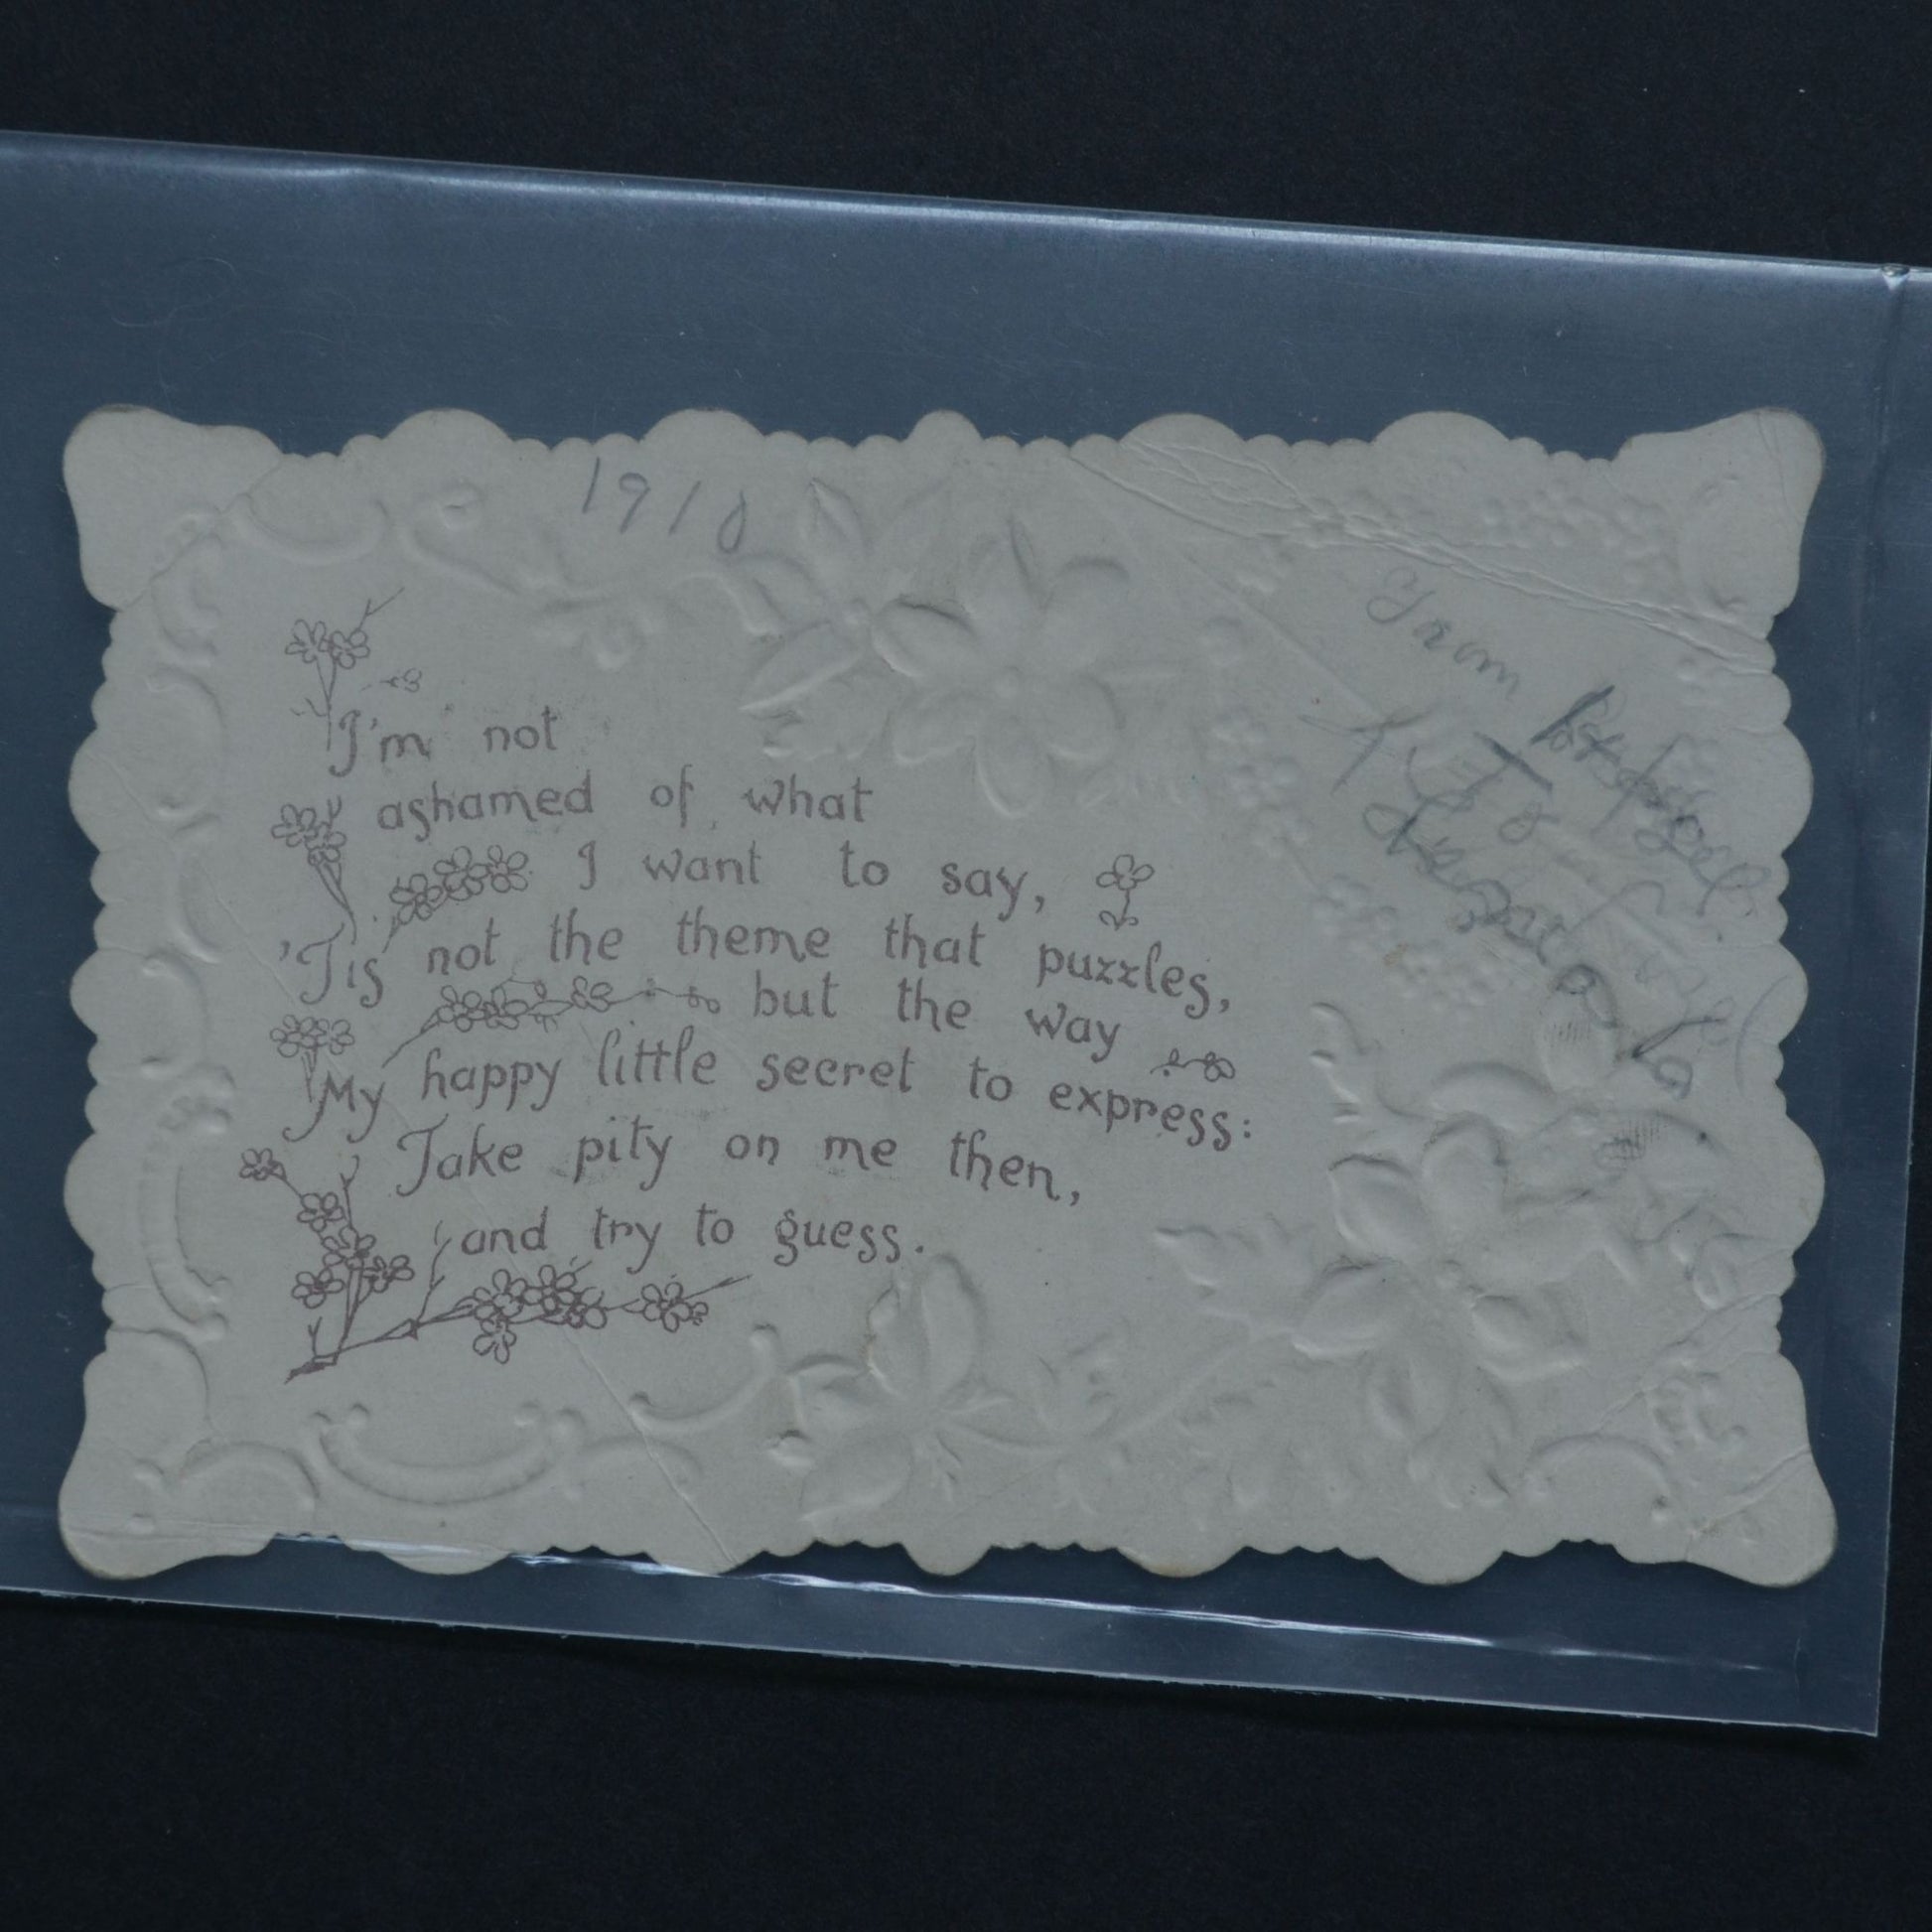 1910
From
I'm not
ashamed of what
I want to say,
'Tis not the theme that puzzles,
but the way
My happy little secret to express:
Take pity on me then,
and try to guess.